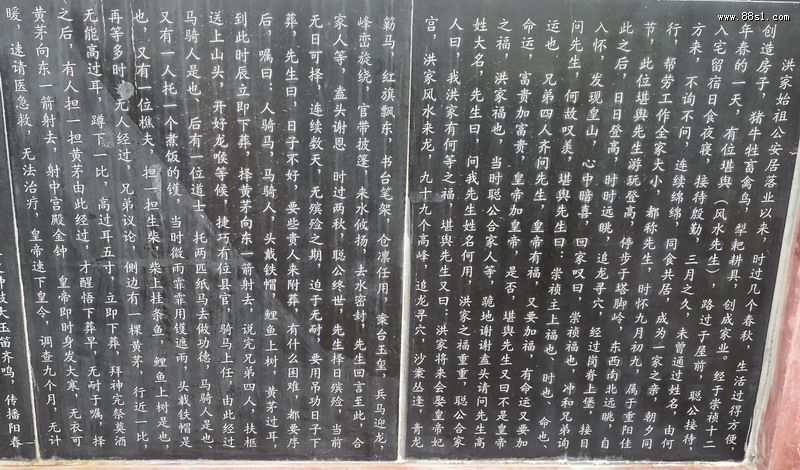 www.88sl.com
洪家始祖公安居落业以来，时过几个春秋，生活过得方便，
创造房子，猪牛牲畜禽鸟，犁耙耕具，创成家业，经于崇祯十二
年春的一天，有位堪舆（风水先生），路过于屋前，聪公接待，
入宅留宿日食夜寝，接待殷勤，三月之久，未曾通过姓名，由何
方来，不询不问，连续绵绵，同食共居，成为一家之亲，朝夕同
行，帮劳工作全家大小，都称先生，时怀九月初九，属于重阳佳
节，此位堪舆先生游玩登高，停步于塔脚岭，东西南北远眺，自
此之后，日日登高，时时远眺，追龙寻穴，经过岗脊上堡，接目
入怀，发现皇山，心中暗喜，回家叹曰，崇祯福也，冲和兄弟询
问先生，何故叹美，堪舆先生曰：崇祯主上福也，时也，命也，
运也，兄弟四人齐问先生，皇帝有福，又要加福，有命运又要加
命运，富贵加富贵，皇帝加皇帝，是否，堪舆先生又曰不是皇帝
之福，洪家福也，当时聪公合家人等，跪地谢谢盖头请问先生高
姓大名，先生曰，问我先生姓名何用，洪家之福重重，聪公合家
人曰，我洪家有何等之福，堪舆先生又曰：洪家将来会娶皇帝妃
宫，洪家风水来龙，九十九个高峰，追龙寻穴，沙案丛逢，青龙
笏马，红旗飘东，书台笔架，仓凛任用，案台玉玺，兵马迎龙，
峰峦旋绕，官带披蓬，来水攸扬，去水密封，先生回言至此，合
家人等，盖头谢恩，时过两秋，聪公终世，先生择日殡殓，当前
无日可择，连续数天，无殡殓之期，迫于无耐，要用吊功日子下
葬，先生曰，日子不好，要些贵人来附葬，有什么困难，都要序
后，嘱曰：人骑马，马骑人，头戴铁帽，鲤鱼上树，黄茅过耳，
到此时辰立即下葬，择黄茅向东一箭射去，说完兄弟四人，扶柩
送上山头，开好龙喉等候，捷巧有位县官，骑马上任，由此经过
马骑人是也，后有一位道士，托两匹纸马去做功德，马骑人是
也，又有一人托一个煮饭的镬，当时微雨霏霏用镬遮雨，头戴铁帽是
也，又有一位樵夫，担一担生柴，柴上挂条鱼，鲤鱼上树是也，
再等多时，无人经过，兄弟议论，侧边有一棵黄茅，行近一比，
无能高过耳，蹲下一比，高过耳五寸，立即下葬，拜神完祭奠酒
之后，有人担一担黄茅由此经过，才醒悟下葬早，无耐于嘱，择
黄茅向东一箭射去，射中宫殿金钟，皇帝即时身发大寒，无衣可
暖，速请医急救，无法治疗，皇帝速下皇令，调查九个月，无计
鼓大玉笛齐鸣，传播阳春